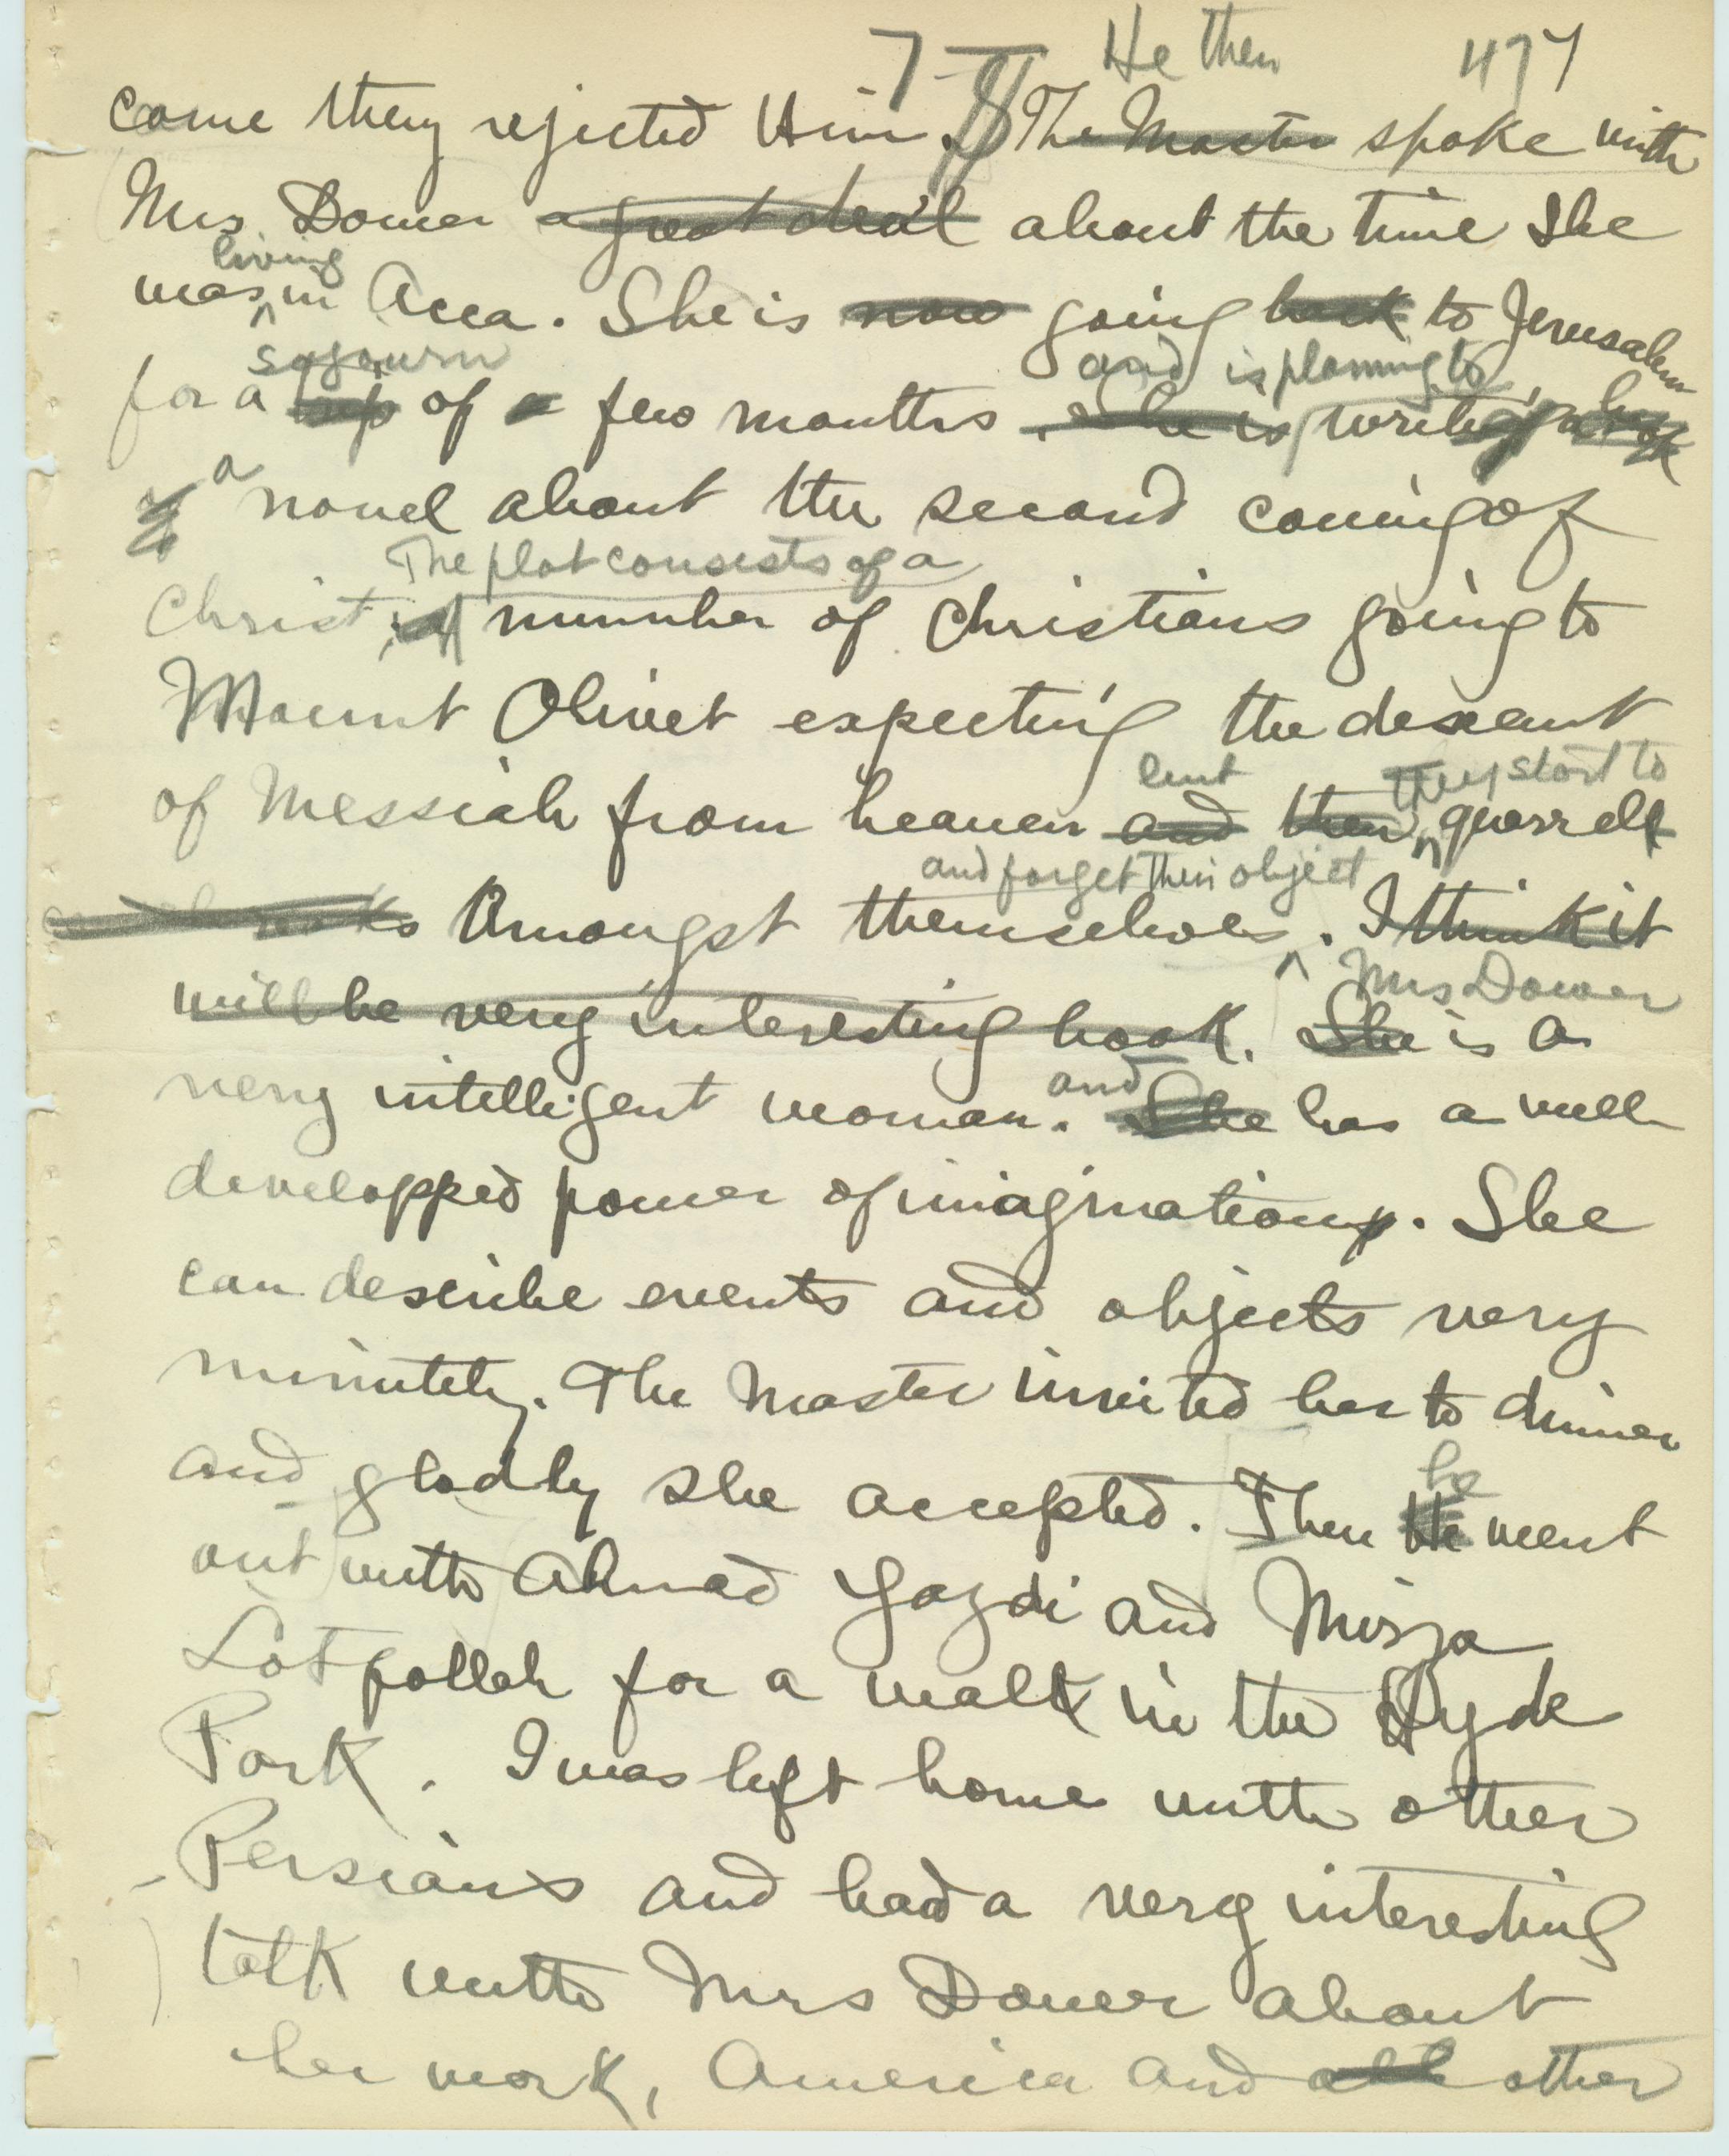 7- He then 477
come they rejected Him. The Master spoke with
Mrs Dower a great deal about the time She
living
was in Acca. She is now going back to Jerusalem
sojourn and is planning to
for a trip of a few months. She is writing a book
a novel about the second coming of
The plot consists of a
Christ, number of Christians going to
Mount Olivet expecting the descent
but they start to
of Messiah from heaven and then quarrell
and forget their object
Amongst themselves. I think it
Mrs Dower
will be very interesting book. She is a
and
very intelligent woman. She has a well
developped power of imagination. She
can describe events and objects very
minutely. The Master invited her to dinner
he
and gladly she accepted. Then He went
out with Ahmad Yazdi and Mirza
Lotfollah for a walk in the Hyde
Park. I was left home with other
Persians and had a very interesting
talk with Mrs Dower about
her work, America and all other